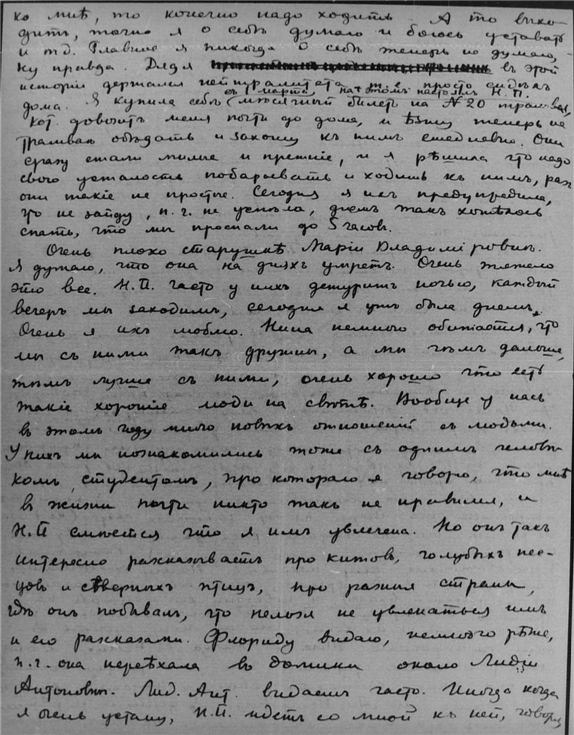 ко мнѣ, то конечно надо ходить. А то выхо-
дитъ, точно я о себѣ думаю и боюсь уставать
и т.д. Главное я никогда о себѣ теперь не думаю,
ну правда. Дядя въ этой
исторіи держался нейтралитета, т.е. просто сидѣлъ
съ 1 марта, на этомъ настоялъ Н.П.,
дома. Я купила себѣ мѣсячный билетъ на № 20 трамвая,
кот. довозитъ меня почти до дома, и ѣзжу теперь на
трамваѣ обѣдать и захожу къ нимъ ежедневно. Они
сразу стали милые и прежніе, и я рѣшила что надо
свою усталость побарывать и ходить къ нимъ, раз
они такіе не простые. Сегодня я ихъ предупредила,
что не зайду, п.ч. не успѣла, днемъ такъ хотѣлось
спать, что мы проспали до 5 часовъ.
Очень плохо старушкѣ Маріи Владиміровнѣ.
Я думаю, что она на дняхъ умретъ. Очень тяжело
это все. Н.П. часто у нихъ дежуритъ ночью, каждый
вечеръ мы заходимъ, сегодня я ужъ была днемъ.
Очень я ихъ люблю. Нина немного обижается, что
мы съ ними такъ дружны, а мы чѣмъ дальше,
тѣмъ лучше съ ними, очень хорошо что есть
такіе хорошіе люди на свѣтѣ. Вообще у насъ
въ этомъ году много новыхъ отношеній съ людьми.
У нихъ мы познакомились тоже съ однимъ человѣ-
комъ, студентомъ, про котораго я говорю, что мнѣ
въ жизни почти никто такъ не нравился, и
Н.П. смѣется что я имъ увлечена. Но онъ такъ
интересно разсказываетъ про китовъ, голубыхъ пес-
цовъ и сѣверныхъ птицъ, про разныя страны,
гдѣ онъ побывалъ, что нельзя не увлекаться имъ
и его разсказами. Флориду видаю, немного рѣже,
п.ч. она переѣхала въ домики около Лидіи
Антоновны. Лид. Ант. видаемъ часто. Иногда когда
я очень устану, Н.П. идетъ со мной къ ней, говоря